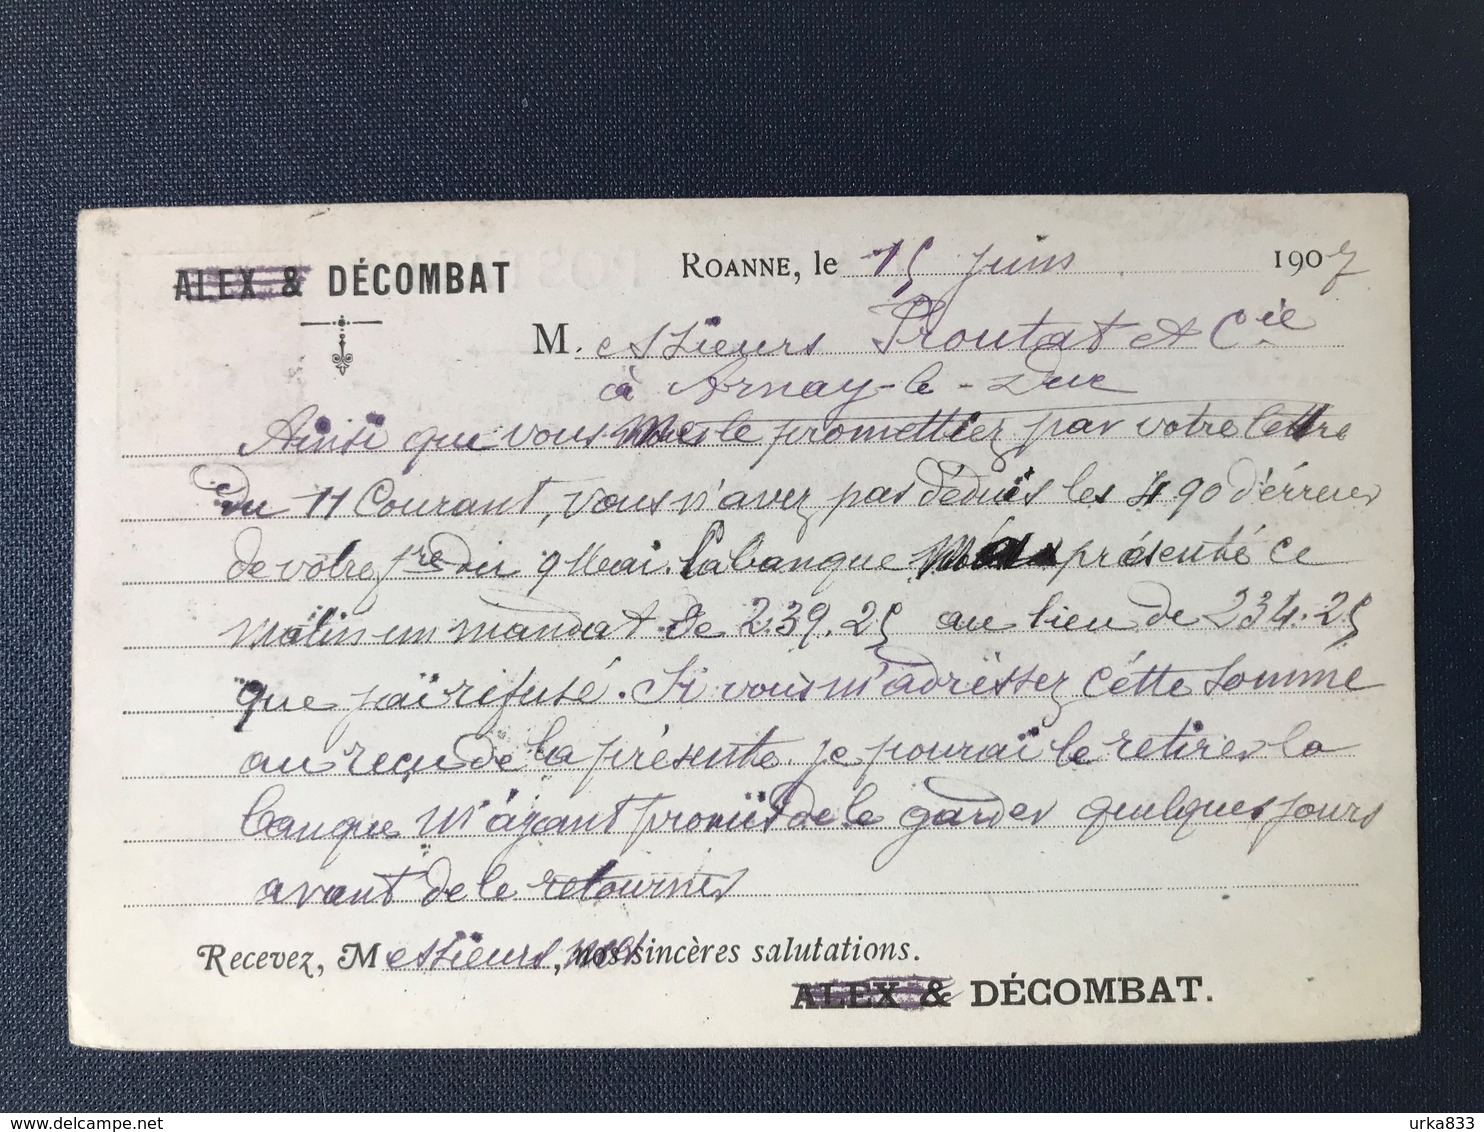 ALEX & DÉCOMBAT
ROANNE, le 15 Juin 1907
M. essieurs Proutat et Cie
à Arnay-le-Duc
Ainsi que vous me le promettiez par votre lettre
du 11 Courant, vous n'avez pas déduis les 4.90 d'érreur
de vôtre fre du 9 Mai. la banque m'a présenté ce
matin un mandat de 239.25 au lieu de 234.25
que j'ai réfusé. Si vous m'adréssez cétte sommé
au reçu de la présente je pourai le retirer la
banque m'ayant promis de le garder quelques jours
avant de le retourner
Recevez, Messieurs, mes sincères salutations.
ALEX & DÉCOMBAT.
urka833